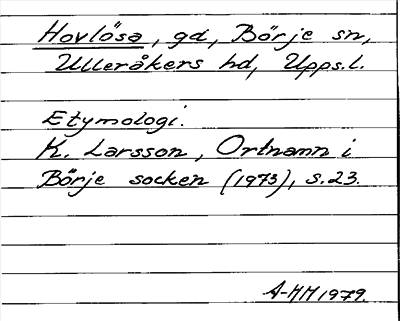 Hovlösa, gd, Börje sn,
Ulleråkers hd, Upps.l.
Etymologi.
K. Larsson, Ortnamn i
Börje socken (1973), s.23.
A-MM 1979.